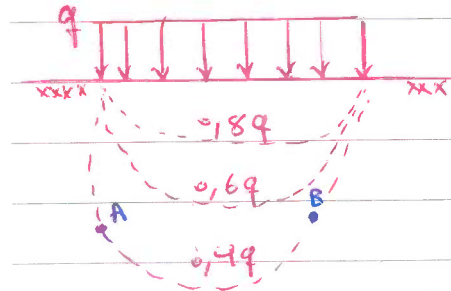 q
xxxx xxx
0,8q
0,6q
A B
0,4q